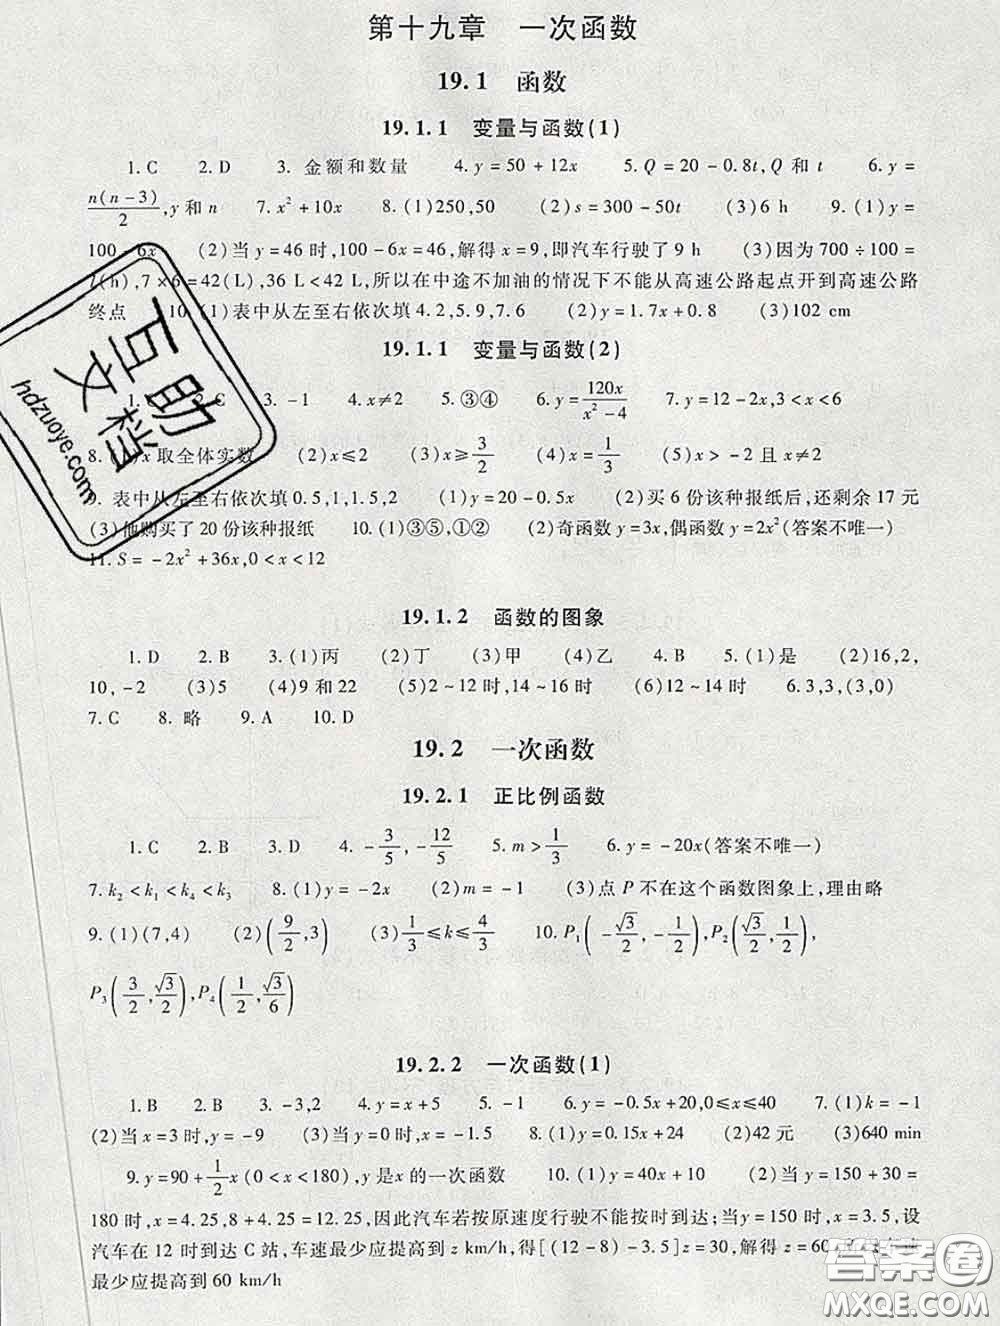 第十九章　一次函数
19.1　函数
19.1.1　变量与函数(1)
1. C　2. D　3. 金额和数量　4. y = 50 + 12x　5. Q = 20 - 0.8t, Q 和 t　6. y =
n(n-3)/2, y 和 n　7. x² + 10x　8. (1)250,50　(2)s = 300 - 50t　(3)6 h　9. (1)y =
100 - 6x　(2)当 y = 46 时, 100 - 6x = 46, 解得 x = 9, 即汽车行驶了 9 h　(3)因为 700 ÷ 100 =
7(h), 7 × 6 = 42(L), 36 L < 42 L, 所以在中途不加油的情况下不能从高速公路起点开到高速公路
终点　10. (1)表中从左至右依次填 4.2,5.9,7.6　(2)y = 1.7x + 0.8　(3)102 cm
19.1.1　变量与函数(2)
1. C　2. C　3. -1　4. x≠2　5. ③④　6. y = 120x/(x² - 4)　7. y = 12 - 2x, 3 < x < 6
8. (1)x 取全体实数　(2)x≤2　(3)x≥3/2　(4)x = 1/3　(5)x > -2 且 x≠2
9. 表中从左至右依次填 0.5,1,1.5,2　(1)y = 20 - 0.5x　(2)买 6 份该种报纸后, 还剩余 17 元
(3)他购买了 20 份该种报纸　10. (1)③⑤,①②　(2)奇函数 y = 3x, 偶函数 y = 2x²(答案不唯一)
11. S = -2x² + 36x, 0 < x < 12
19.1.2　函数的图象
1. D　2. B　3. (1)丙　(2)丁　(3)甲　(4)乙　4. B　5. (1)是　(2)16,2,
10, -2　(3)5　(4)9 和 22　(5)2 ~ 12 时, 14 ~ 16 时　(6)12 ~ 14 时　6. 3,3,(3,0)
7. C　8. 略　9. A　10. D
19.2　一次函数
19.2.1　正比例函数
1. C　2. B　3. D　4. -3/5, -12/5　5. m > 1/3　6. y = -20x(答案不唯一)
7. k₂ < k₁ < k₄ < k₃　8. (1)y = -2x　(2)m = -1　(3)点 P 不在这个函数图象上, 理由略
9. (1)(7,4)　(2)(9/2,3)　(3)1/3≤k≤4/3　10. P₁(-√3/2, -1/2), P₂(√3/2, 1/2),
P₃(3/2, √3/2), P₄(1/2, √3/6)
19.2.2　一次函数(1)
1. B　2. B　3. -3,2　4. y = x + 5　5. -1　6. y = -0.5x + 20, 0≤x≤40　7. (1)k = -1
(2)当 x = 3 时, y = -9　(3)当 y = 0 时, x = -1.5　8. (1)y = 0.15x + 24　(2)42 元　(3)640 min
9. y = 90 + 1/2 x(0 < x < 180), y 是 x 的一次函数　10. (1)y = 40x + 10　(2)当 y = 150 + 30 =
180 时, x = 4.25, 8 + 4.25 = 12.25, 因此汽车若按原速度行驶不能按时到达; 当 y = 150 时, x = 3.5, 设
汽车在 12 时到达 C 站, 车速最少应提高到 z km/h, 得[(12 - 8) - 3.5]z = 30, 解得 z = 60
最少应提高到 60 km/h
互助文档
hdzuoye.com
答案圈
MXQE.COM